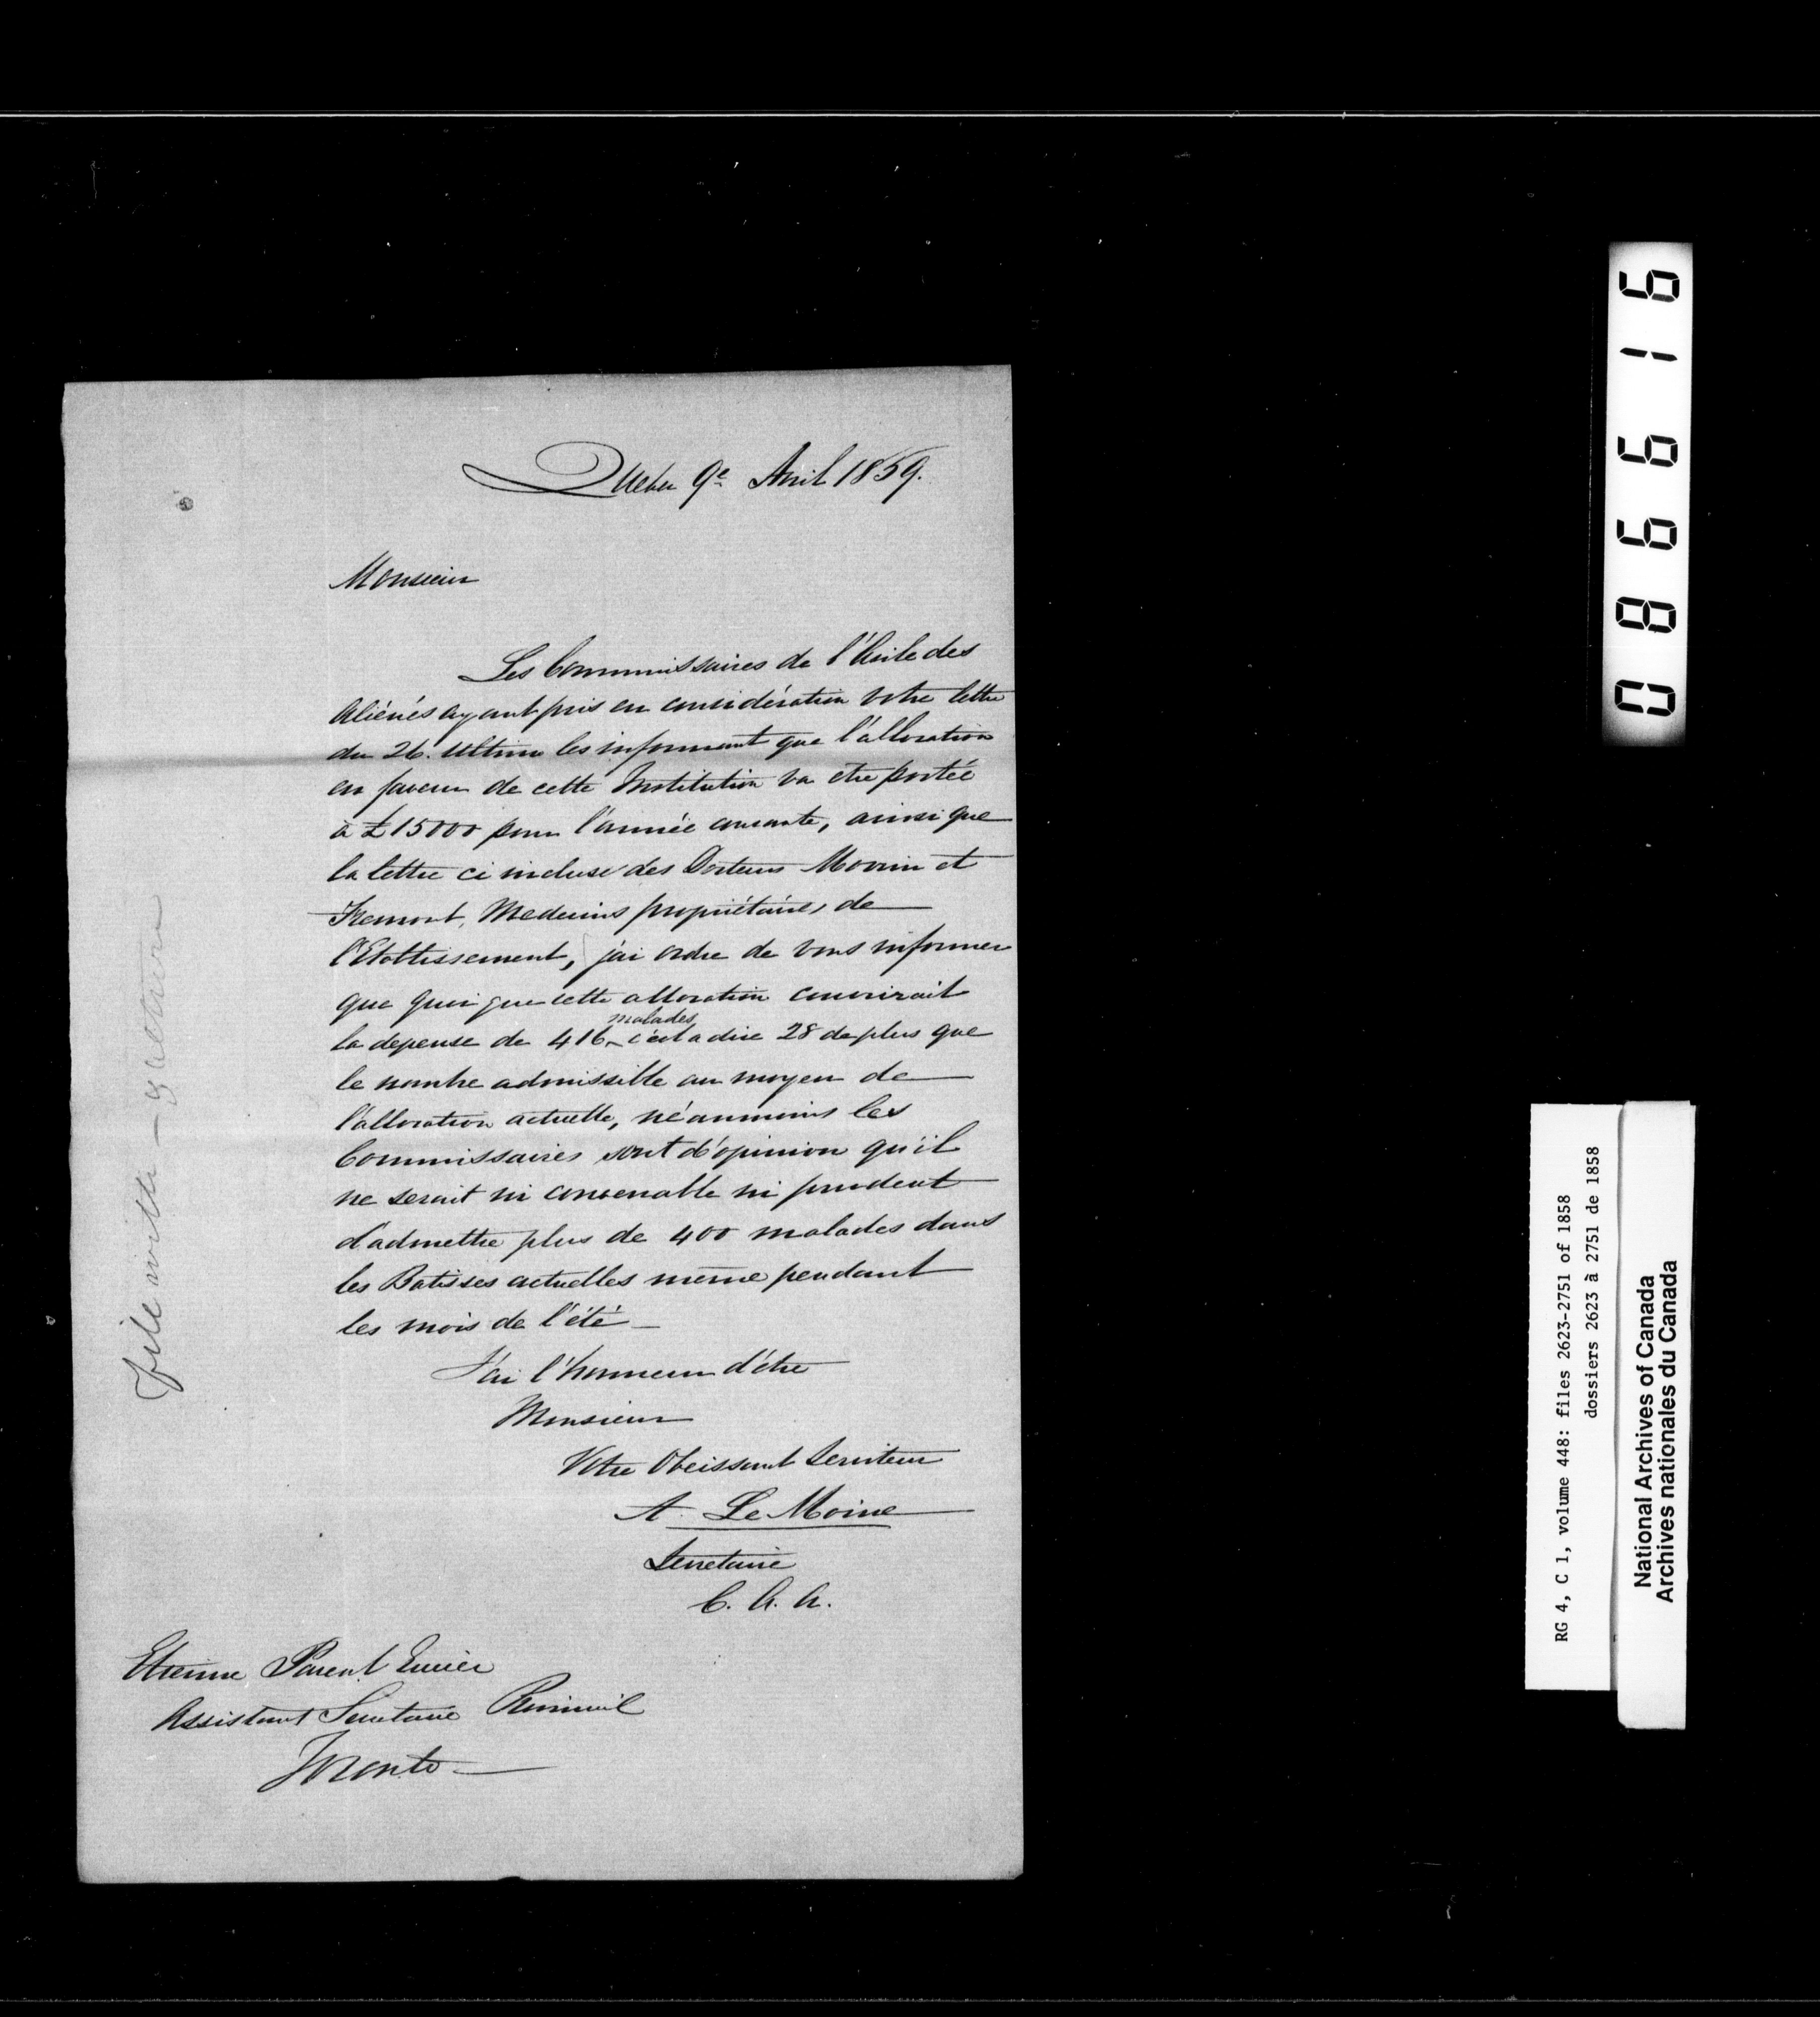 Quebec 9e Avril 1859.
Monsieur
Les Commissaires de l'Asile des
Aliénés ayant pris en considération votre lettre
du 26. Ultimo les informant que l'allocation
en faveur de cette Institution va etre portée
à £15000 pour l'année courante, ainsi que
la lettre ci incluse des Docteurs Morrin et
Fremont, Medecins propriétaires de
l'Etablissement, j'ai ordre de vous informer
que quoi que cette allocation couvrirait
la depense de 416 malades c'est a dire 28 de plus que
le nombre admissible au moyen de
l'allocation actuelle, néanmoins les
Commissaires sont d'opinion qu'il
ne serait ni convenable ni prudent
d'admettre plus de 400 malades dans
les Batisses actuelles meme pendant
les mois de l'été _
J'ai l'honneur d'être
Monsieur
Votre Obeissant Serviteur
A. Le Moine
Secretaire
C. A. A.
Etienne Parent Ecuier
Assistant Secretaire Provincial
Toronto —
file with —
086616
RG 4, C 1, volume 448: files 2623-2751 of 1858
dossiers 2623 à 2751 de 1858
National Archives of Canada
Archives nationales du Canada